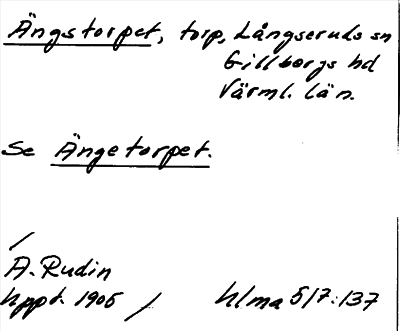 Ängstorpet, torp, Långseruds sn
Gillbergs hd
Värml. län.
Se Ängetorpet.
A. Rudin
Uppt. 1905 / Ulma 517:137